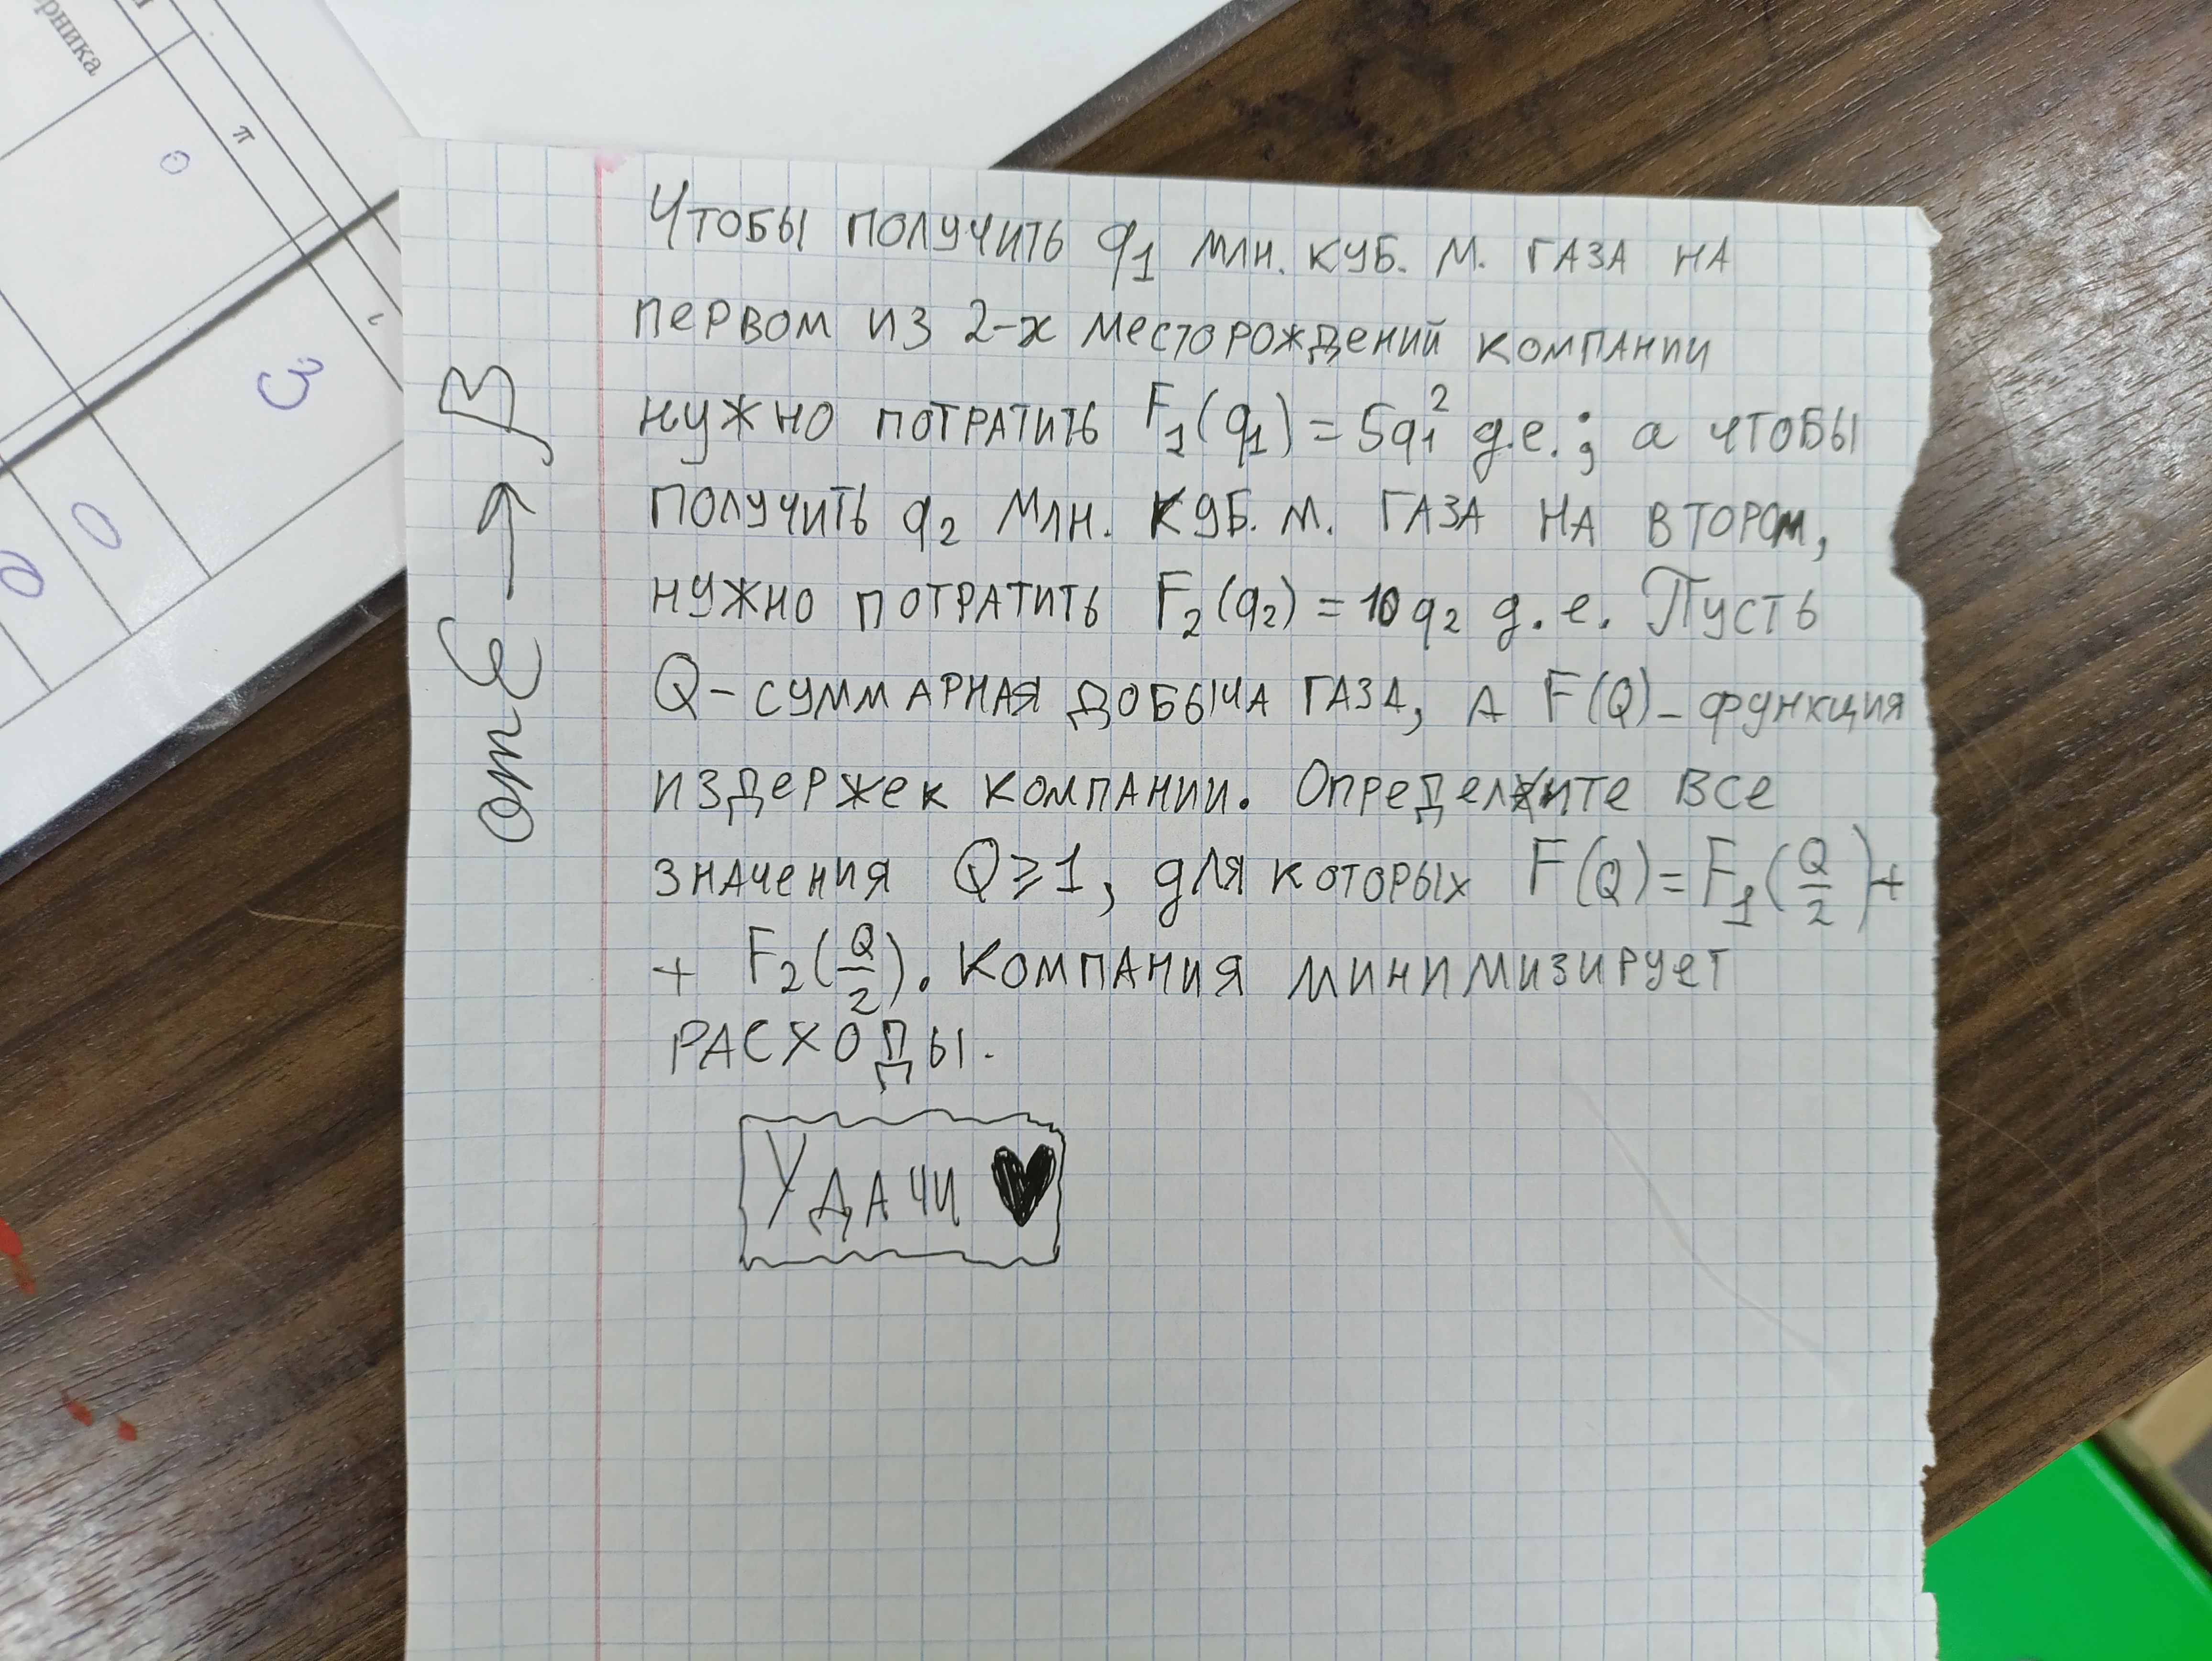 рника
π
0
3
0
0
от Е → В
Чтобы получить q₁ млн. куб. м. газа на
первом из 2-х месторождений компании
нужно потратить F₁(q₁) = 5q₁² д.е.; а чтобы
получить q₂ млн. куб. м. газа на втором,
нужно потратить F₂(q₂) = 10q₂ д.е. Пусть
Q - суммарная добыча газа, а F(Q) - функция
издержек компании. Определите все
значения Q ⩾ 1, для которых F(Q) = F₁(Q/2) +
+ F₂(Q/2). Компания минимизирует
расходы.
Удачи ♥